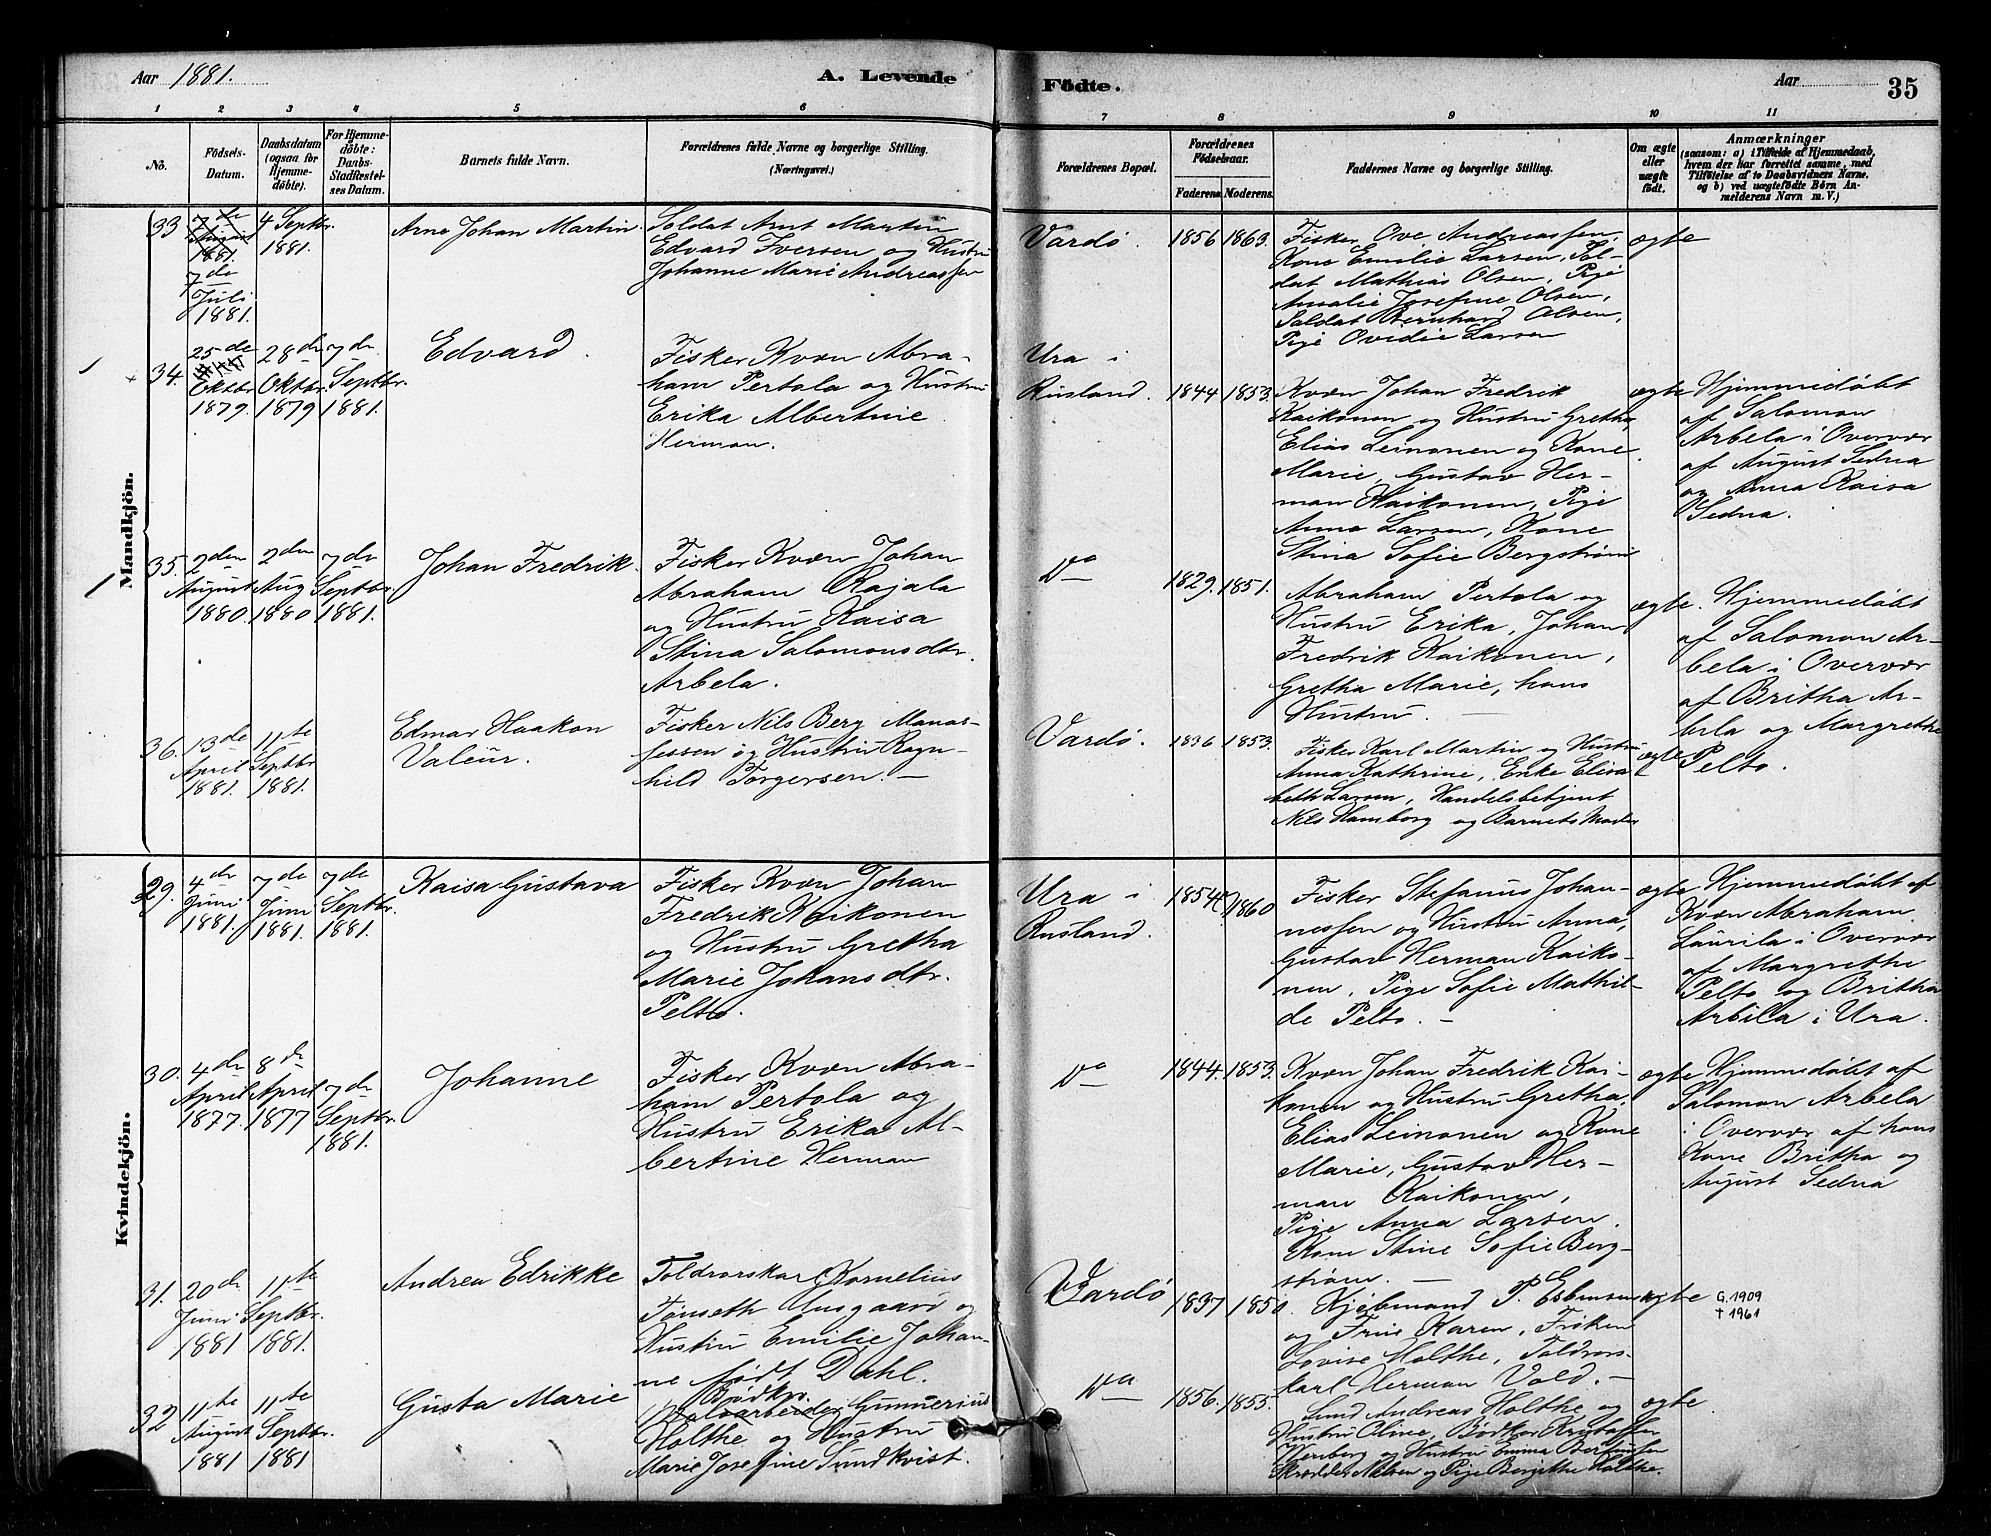 Aar 1881.
A. Levende
Födte.
Aar
35
1 2 3 4 5 6 7 8 9 10 11
No.
Födsels-
Datum.
Daabsdatum
(ogsaa for
Hjemme-
döbte).
For Hjemme-
döbte:
Daabs-
Stadfæstel-
ses Datum.
Barnets fulde Navn.
Forældrenes fulde Navne og borgerlige Stilling.
(Næringsvei.)
Forældrenes Bopæl.
Forældrenes
Födselsaar.
Faderens.
Moderens.
Faddernes Navne og borgerlige Stilling.
Om ægte
eller
uægte
födt.
Anmærkninger
(saasom: a) i Tilfælde af Hjemmedaab,
hvem der har forrettet samme, med
Tilföielse af to Daabsvidners Navne.
og b) ved uægtefödte Börn An-
melderens Navn m. V.)
Mandkjön.
33
7de
August
1881.
7de
Juli
1881.
4 Septbr.
1881.
Arne Johan Martin.
Soldat Arnt Martin
Edvard Iversen og Hustru
Johanne Marie Andreassen
Vardø.
1856
1863.
Fisker Ove Andreassen,
Kone Emilie Larsen, Sol-
dat Mathias Olsen, Pige
Amalie Josefine Olsen,
Soldat Bernhard Olsen,
Pige Ovidie Larsen
ægte
34.
25de
Oktbr.
1879.
28de
Oktbr.
1879
7de
Septbr.
1881.
Edvard.
Fisker Kvæn Abra-
ham Pertola og Hustru
Erika Albertine
Herman.
Ura i
Rusland.
1844
1853.
Kvæn Johan Fredrik
Kaikonen og Hustru Gretha,
Elias Leinonen og Kone
Marie, Gustav Her-
man Kaikonen, Pige
Anna Larsen, Kone
Stina Sofie Bergstrøm
ægte
Hjemmedøbt
af Salomon
Arbela i Overvær
af August Sedna
og Anna Kaisa
Sedna.
35.
2den
August
1880.
2den
Aug
1880
7de
Septbr.
1881.
Johan Fredrik.
Fisker Kvæn Johan
Abraham Rajala
og Hustru Kaisa
Stina Salomonsdtr.
Arbela.
Do
1829.
1851.
Abraham Pertola og
Hustru Erika, Johan
Fredrik Kaikonen,
Gretha Marie, hans
Hustru.
ægte.
Hjemmedøbt
af Salomon Ar-
bela i Overvær
af Britha Ar-
bela og Margrethe
Pelto.
36.
13de
April
1881.
11te
Septbr.
1881.
Edmar Haakon
Valeur.
Fisker Nils Berg Manas-
sessen og Hustru Ragn-
hild Torgersen. —
Vardø.
1836
1853.
Fisker Karl Martin og Hustru
Anna Kathrine, Enke Elisa-
beth Larsen, Handelsbetjent
Nils Hamborg og Barnets Moder
ægte
Kvindekjön.
29.
4de
Juni
1881.
7de
Juni
1881.
7de
Septbr.
1881.
Kaisa Gustava
Fisker Kvæn Johan
Fredrik Kaikonen
og Hustru Gretha
Marie Johansdtr.
Pelto.
Ura i
Rusland.
1854
1860
Fisker Stefanus Johan-
nessen og Hustru Anna,
Gustav Herman Kaiko-
nen, Pige Sofie Mathil-
de Pelto. —
ægte
Hjemmedøbt af
Kvæn Abraham
Laurila i Overvær
af Margrethe
Pelto og Britha
Arbela i Ura.
30.
4de
April
1877.
8de
April
1877
7de
Septbr.
1881.
Johanne
Fisker Kvæn Abra-
ham Pertola og
Hustru Erika Al-
bertine Herman
Do
1844.
1853.
Kvæn Johan Fredrik Kai-
konen og Hustru Gretha,
Elias Leinonen og Kone
Marie, Gustav Her-
man Kaikonen,
Pige Anna Larsen.
Kone Stine Sofie Berg-
strøm. —
ægte
Hjemmedøbt af
Salomon Arbela
i Overvær af hans
Kone Britha og
August Sedna
31.
20de
Juni
1881
11te
Septbr.
1881.
Andrea Edrikke
Toldrorskarl Kornelius
Tønseth Ausgaard og
Hustru Emilie Johan-
ne født Dahl.
Vardø
1837
1850.
Kjøbmand P. Esbensen
og Frue Karen, Frøken
Lovise Holthe, Toldrors-
karl Herman Vold. —
ægte
G. 1909
† 1961
32
11te
August
1881
11te
Septbr.
1881
Gusta Marie
Bødker
Gunnerius
Holthe og Hustru
Marie Josefine Sundkvist.
Do
1856.
1855.
Andreas Holthe og
Hustru Oline, Bødker Kristoffer
Wernberg og Hustru Emma Berntsen
Skrædder Nilsen og Pige Bergitte Holthe.
ægte.